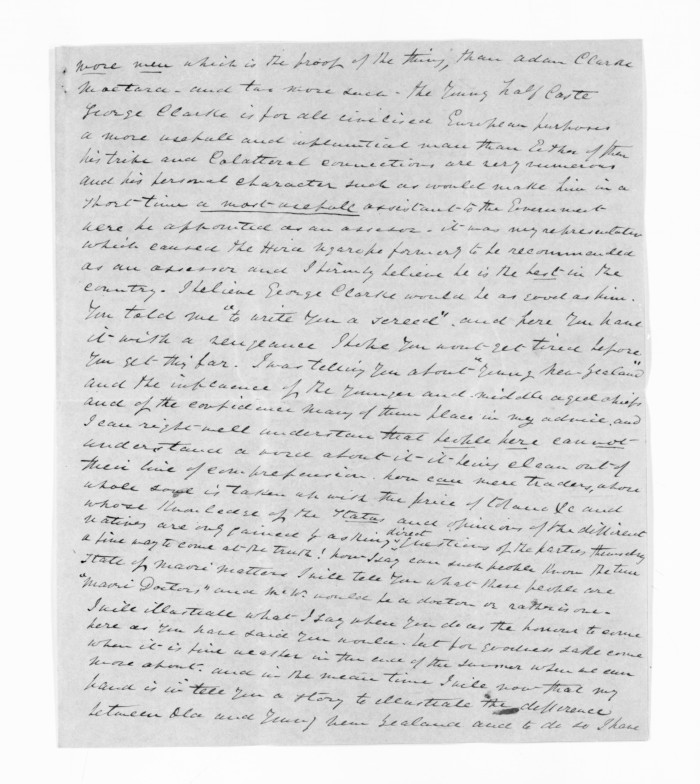 more men which is the proof of the thing, than Adam Clarke
Maetara - and two more such - the Young half Caste
George Clarke is for all civilised European purposes
a more usefull and influential man than Either of them
his tribe and Colatteral connections are very numerous
and his personal character such as would make him in a
short time a most usefull assistant to the Government
were he appointed as an assessor - it was my representation
which caused the Hira ngarope formerly to be recommended
as an assessor and I firmly believe he is the best in the
country - I believe George Clarke would be as good as him.
You told me "to write You a screed". and here You have
it with a vengeance I hope You wont get tired before
You get this far. I was telling You about "Young New Zealand"
and the influence of the Younger and middle aged chiefs
and of the confidence many of them place in my advice, and
I can right well understand that people here cannot
understand a word about it - it being clean out of
their line of comprehension. how can mere traders, whose
whole soul is taken up with the price of tobacco &c and
whose Knowledge of the status and opinions of the different
natives are only gained by asking direct questions of the parties themselves
a fine way to come at the truth! how I say can such people Know the true
state of maori matters I will tell You what these people are
"Maori Doctors" and Mr W. would be a doctor or rather is one.
I will illustrate what I say when You do us the honour to come
here as You have said You would. but for goodness sake come
when it is fine weather in the end of the summer when we can
move about. and in the mean time I will now that my
hand is in tell You a story to illustrate the difference
between Old and Young New Zealand and to do so I have